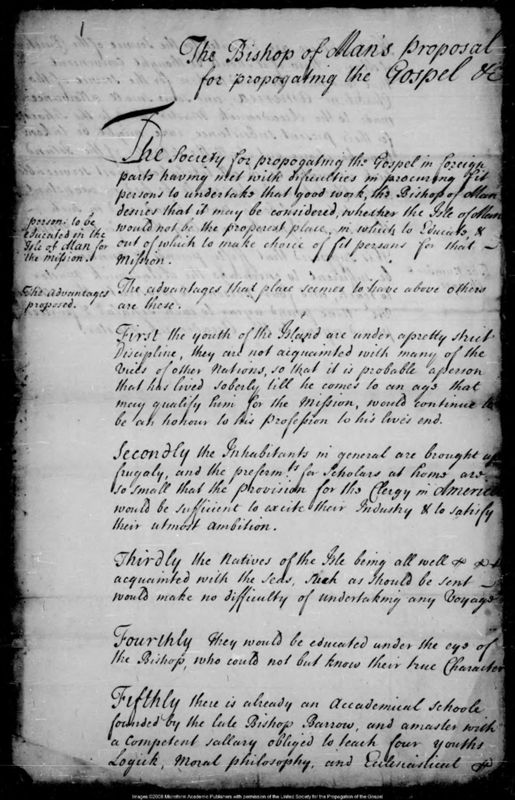 1
The Bishop of Man's proposal
for propogating the Gospel &c
The Society for propogating the Gospel in foreign
parts having met with dificulties in procuring fit
persons to undertake that good work, the Bishop of Man
desires that it may be considered, whether the Isle of Man
would not be the properest place, in which to Educate, &
out of which to make choice of fit persons for that
Mission.
persons to be
educated in the
Isle of Man for
the mission.
The advantages
proposed.
The advantages that place seems to have above others
are these.
First the youth of the Island are under a pretty strict
Discipline, they are not acquainted with many of the
Vices of other Nations, so that it is probable a person
that has lived soberly till he comes to an age that
may qualify him for the Mission, would continue to
be an honour to his Profession to his lives end.
Secondly the Inhabitants in general are brought up
frugaly, and the preferm.ts for Scholars at home are
so small that the provision for the Clergy in America
would be sufficient to excite their Industry & to satisfy
their utmost ambition.
Thirdly the Natives of the Isle being all well
acquainted with the Seas, such as should be sent
would make no difficulty of undertaking any Voyage
Fourthly they would be educated under the eye of
the Bishop, who could not but know their true Character
Fifthly there is already an Accademical Schoole
founded by the late Bishop Barrow, and a master with
a Competent sallary obliged to teach four youths
Logick, Moral philosophy, and Ecclesiastical
Images ©2008 Microform Academic Publishers with permission of the United Society for the Propagation of the Gospel